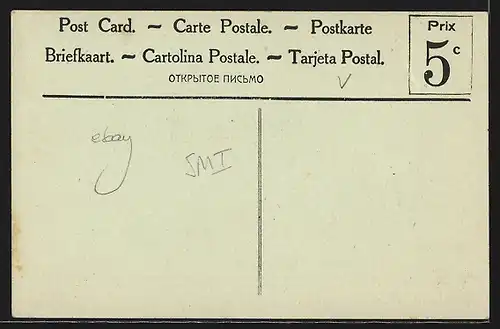 Post Card. ~ Carte Postale. ~ Postkarte
Briefkaart. ~ Cartolina Postale. ~ Tarjeta Postal.
ОТКРЫТОЕ ПИСЬМО
Prix
5 c
V
ebay
SMI